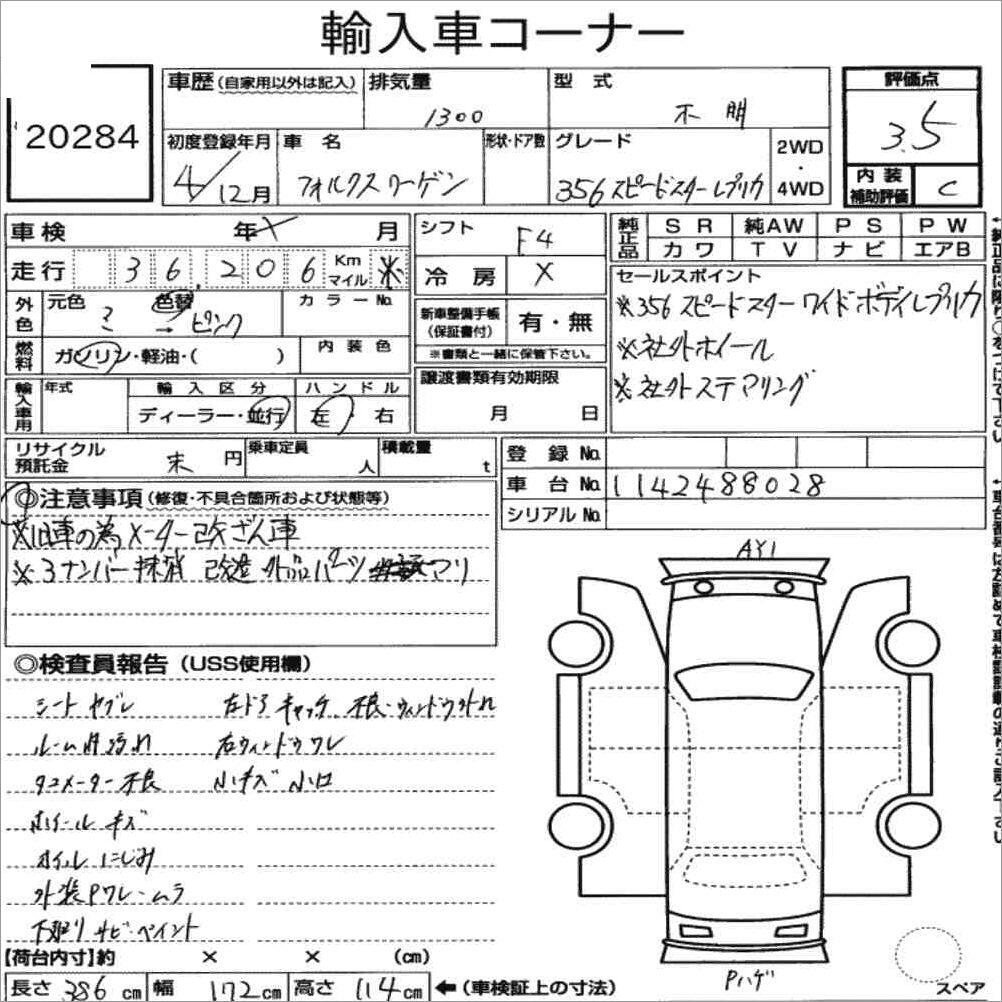 輸入車コーナー
20284
車歴(自家用以外は記入) 排気量 1300 型式 不明 評価点 3.5
初度登録年月 4/12月 車名 フォルクスワーゲン 形状・ドア数 グレード 356スピードスターレプリカ 2WD・4WD 内装補助評価 C
車検 年 月
走行 36,206 Km マイル ※
外色 元色 色替 → ピンク カラーNo.
燃料 ガソリン・軽油・( ) 内装色
輸入車用 年式 輸入区分 ディーラー・並行 ハンドル 左・右
シフト F4
冷房 X
新車整備手帳(保証書付) 有・無
※書類と一緒に保管下さい。
譲渡書類有効期限
月 日
純正品 SR 純AW PS PW
カワ TV ナビ エアB
セールスポイント
※356スピードスターワイドボディレプリカ
※社外ホイール
※社外ステアリング
リサイクル預託金 未 円 乗車定員 人 積載量 t
登録No.
車台No. 1142488028
シリアルNo.
◎注意事項(修復・不具合箇所および状態等)
※旧車の為メーター改ざん車
※3ナンバー抹消 改造 外品パーツ アリ
◎検査員報告(USS使用欄)
シートヤブレ 左ドアキャッチ不良・ウィンドウ外れ
ルーム内汚れ 右ウィンドウワレ
タコメーター不良 小キズ 小凹
ホイールキズ
オイルにじみ
外装Pワレ・ムラ
下廻りサビ・ペイント
AY1
Pハゲ
スペア
【荷台内寸】約 × × (cm)
長さ 386 cm 幅 172 cm 高さ 114 cm ←(車検証上の寸法)